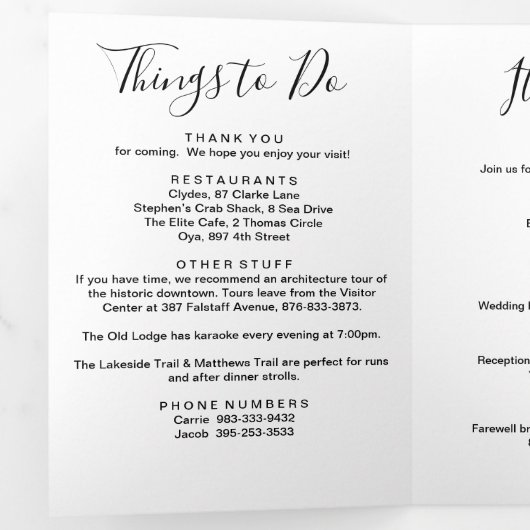 Things to Do
THANK YOU
for coming. We hope you enjoy your visit!
RESTAURANTS
Clydes, 87 Clarke Lane
Stephen's Crab Shack, 8 Sea Drive
The Elite Cafe, 2 Thomas Circle
Oya, 897 4th Street
OTHER STUFF
If you have time, we recommend an architecture tour of
the historic downtown. Tours leave from the Visitor
Center at 387 Falstaff Avenue, 876-833-3873.
The Old Lodge has karaoke every evening at 7:00pm.
The Lakeside Trail & Matthews Trail are perfect for runs
and after dinner strolls.
PHONE NUMBERS
Carrie 983-333-9432
Jacob 395-253-3533
Join us fo
Wedding
Reception
Farewell br